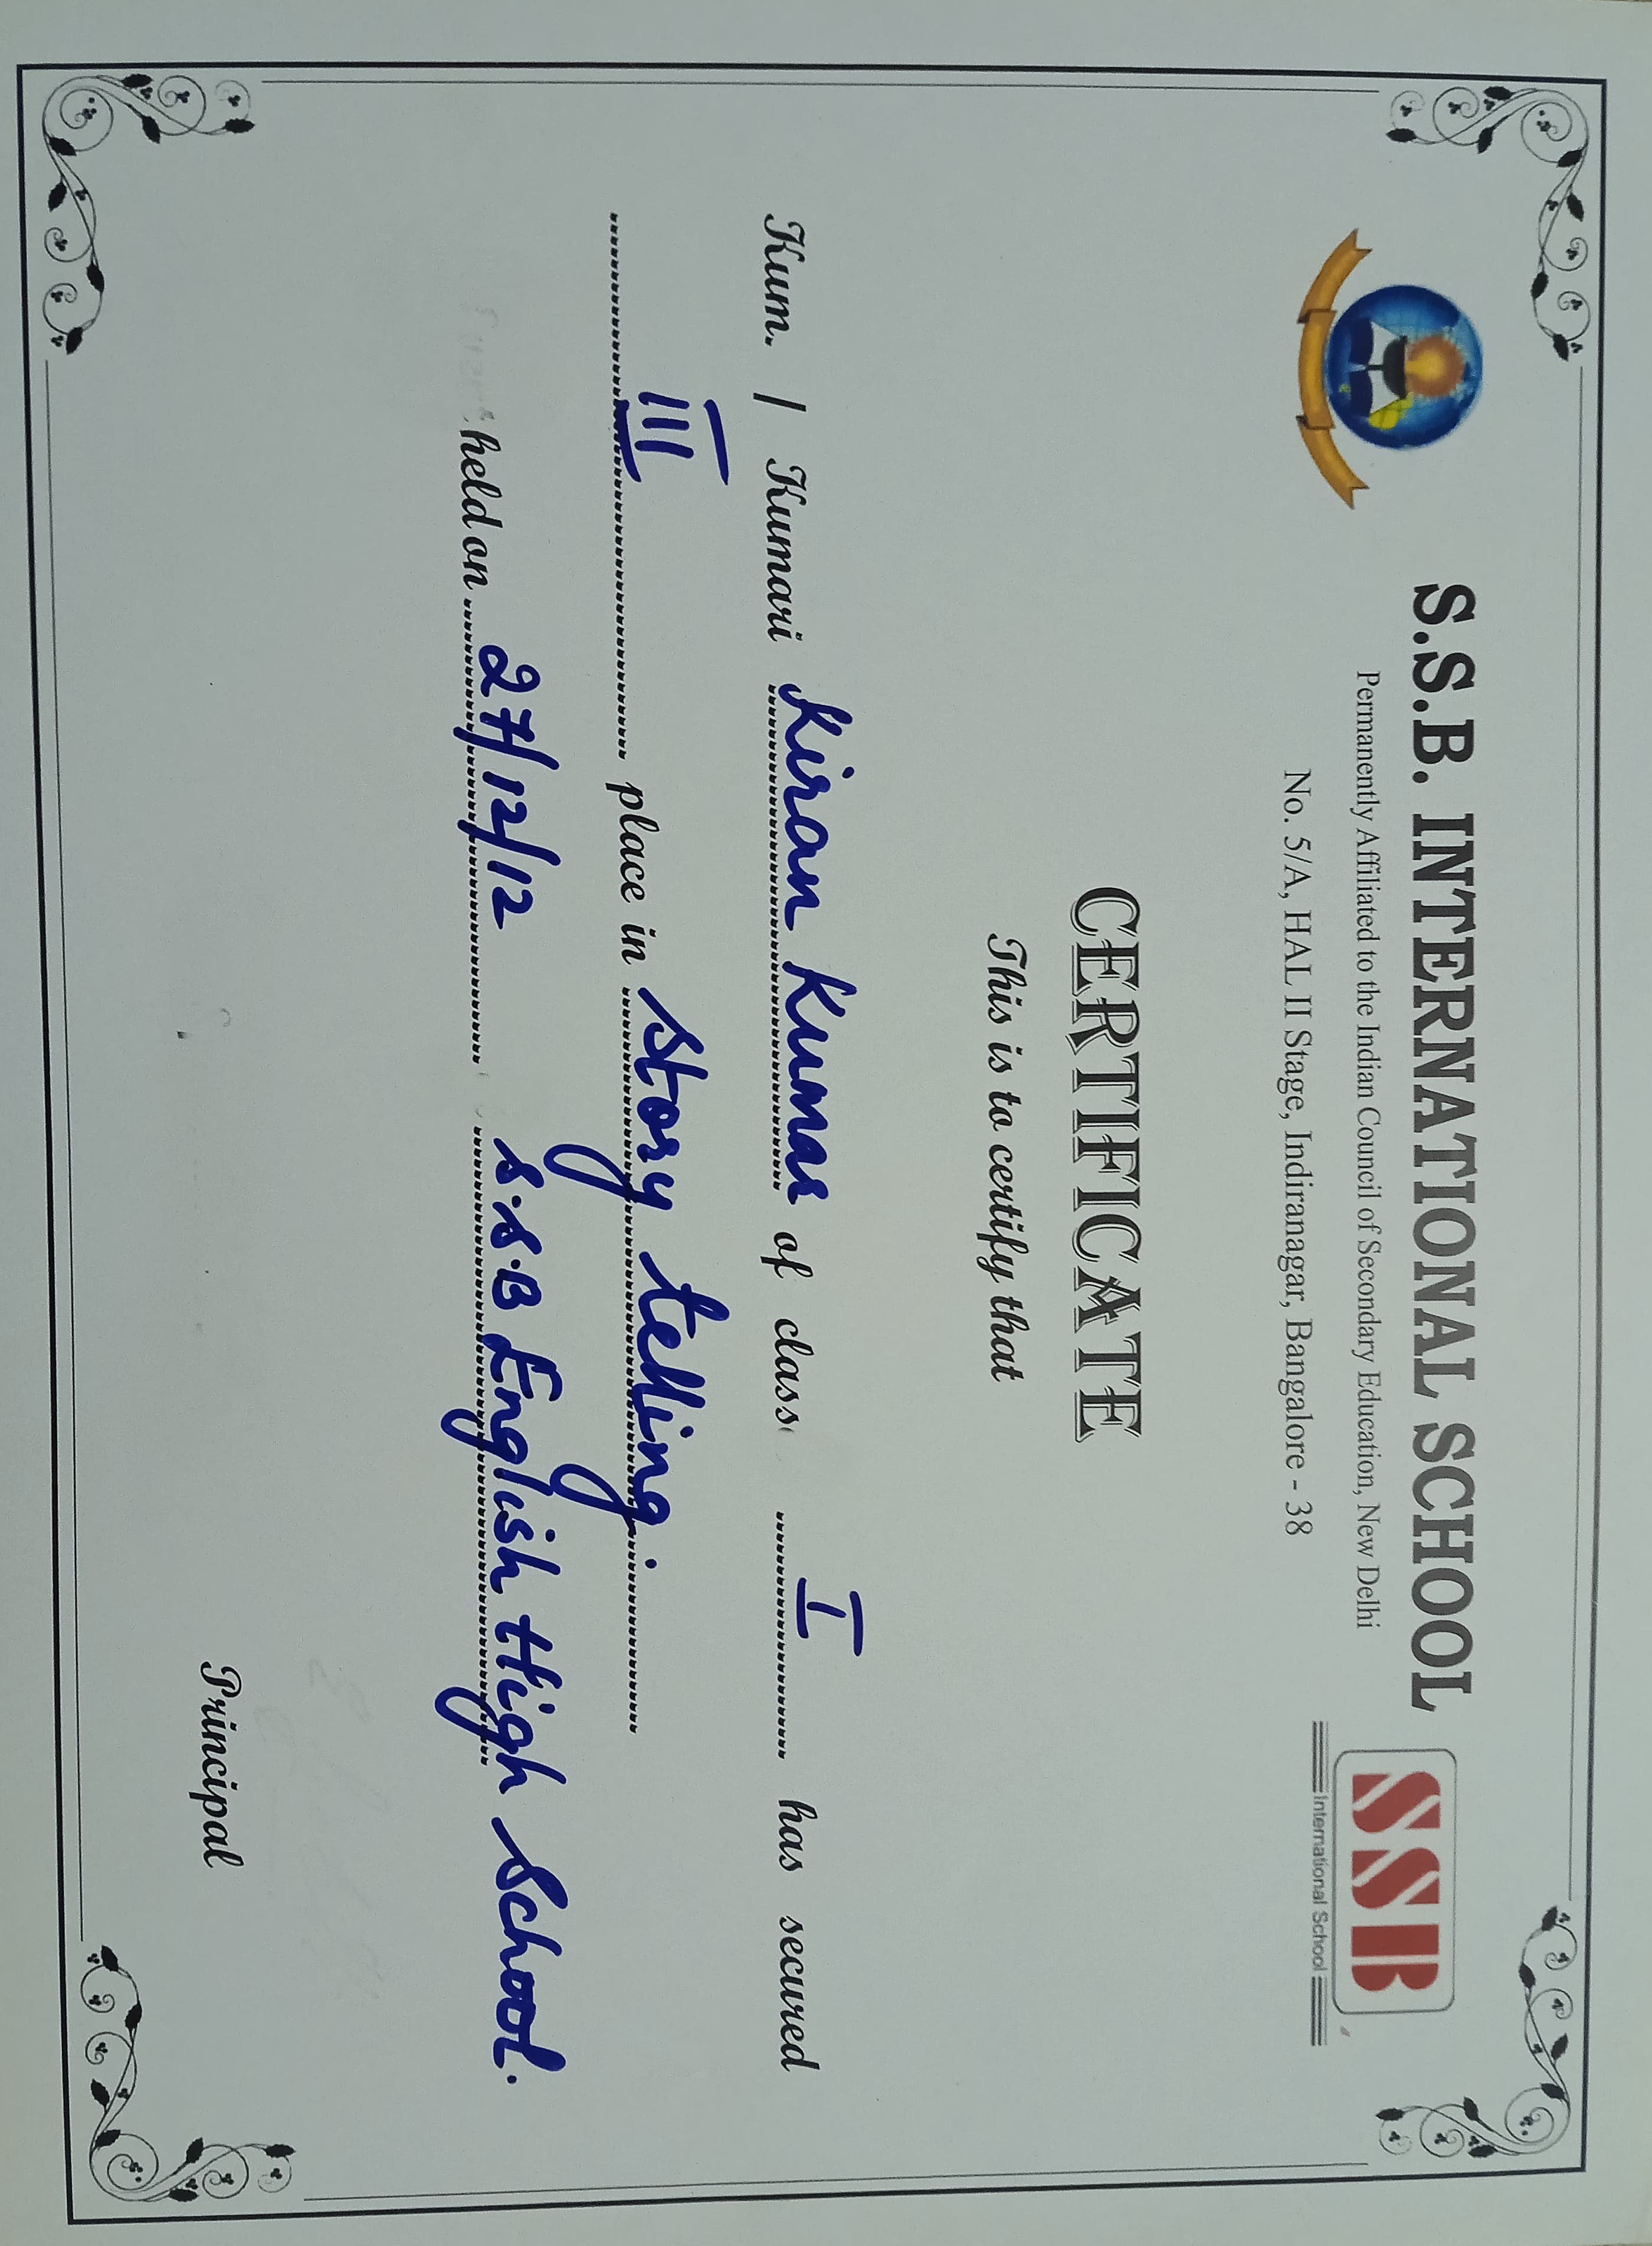 S.S.B. INTERNATIONAL SCHOOL
SSB
International School
Permanently Affiliated to the Indian Council of Secondary Education, New Delhi
No. 5/A, HAL II Stage, Indiranagar, Bangalore - 38
CERTIFICATE
This is to certify that
Kum. / Kumari Kiran Kumar of class I has secured
III place in Story telling.
held on 27/12/12 S.S.B English High School.
Principal